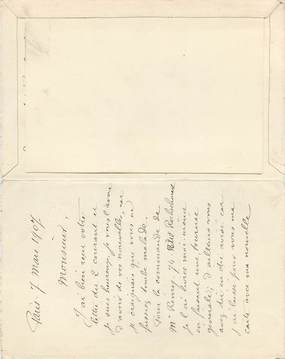 Paris 7 mars 1907
Monsieur,
J'ai bien reçu votre
lettre du 2 courant et
je suis heureux, je vous l'avoue
d'avoir de vos nouvelles, car
je craignais que vous ne
fussiez tombé malade.
Pour la commande de
M. 76 Rochechouart
je l'ai livrée moi-même
en faisant une tournée
générale; d'ailleurs vous
avez dû en être avisé car
j'ai laissé pour vous ma
carte avec ma nouvelle